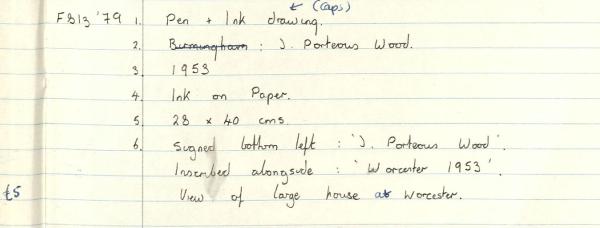 (caps)
F813 '79 1. Pen + Ink drawing.
2. Birmingham : J. Porteous Wood.
3. 1953
4. Ink on Paper.
5. 28 x 40 cms.
6. Signed bottom left : 'J. Porteous Wood'.
Inscribed alongside : 'Worcester 1953'.
£5 View of large house at Worcester.